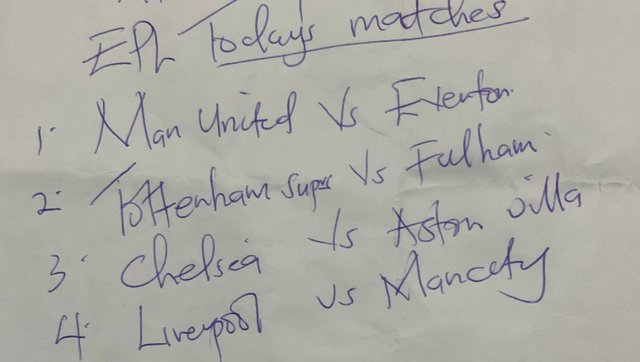 EPL Today's matches
1. Man United Vs Everton.
2. Tottenham Sups Vs Fulham.
3. Chelsea Vs Aston Villa
4. Liverpool vs Mancity